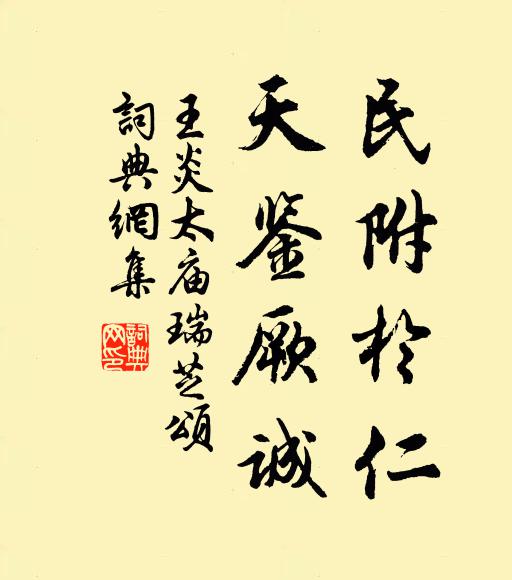 民附於仁
天鉴厥诚
王炎太庙瑞芝頌
詞典網集
詞典
网印